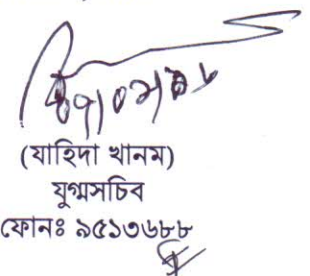 (যাহিদা খানম)
যুগ্মসচিব
ফোনঃ ৯৫১৩৬৮৮